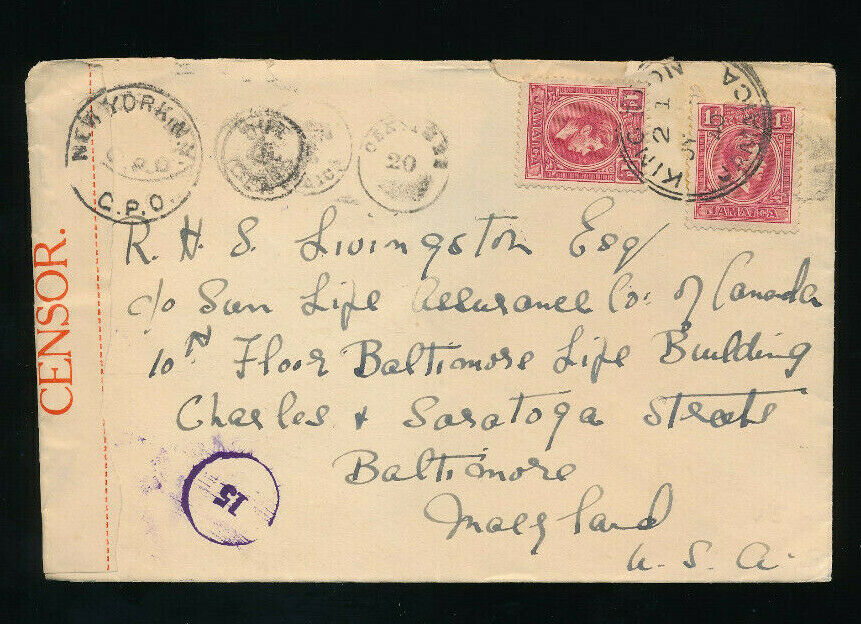 NEW YORK, N.Y.
G.P.O.
C.P.O.
DUE
CENTS
20
1D
JAMAICA
KINGSTON
21
JAMAICA
1D 1D
JAMAICA
CENSOR.
R. H. S. Livingston Esq
c/o Sun Life Assurance Co: of Canada
10th Floor Baltimore Life Building
Charles & Saratoga Streets
Baltimore
Maryland
U.S.A.
15